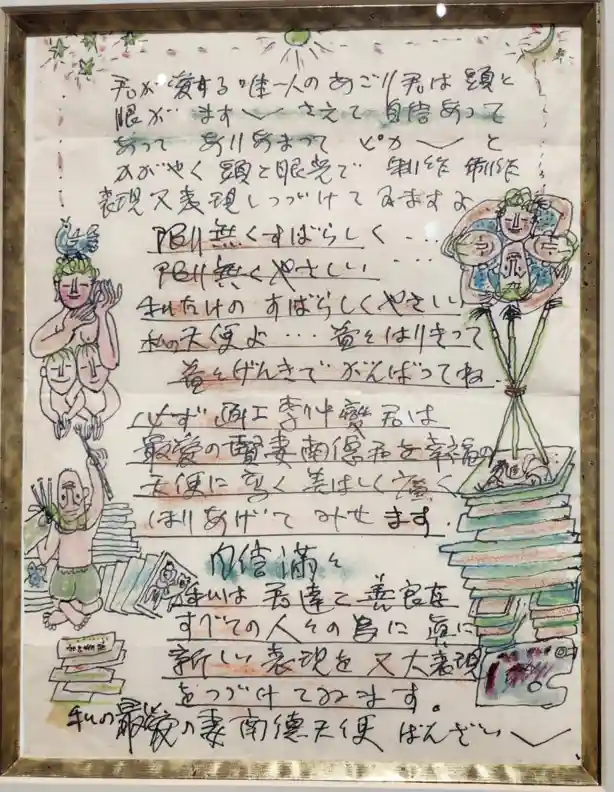 君が愛する唯一人のあごり君は頭と
眼が ます〳〵 さえて 自信あって
あって ありあまって ピカ〳〵 と
かがやく 頭と眼光で 制作 制作
表現又表現しつづけてゐますよ
限り無くすばらしく ・・・
限り無くやさしい ・・・
私だけの すばらしくやさしい
私の天使よ・・・ 益々はりきって
益々げんきで がんばってね.
必ず 画工 李仲燮君は
最愛の賢妻南徳君を幸福の
天使に 高く 美しく 広く
ほりあげて みせ ます.
自信満々
私は 君達と 善良な
すべての人々の為に 真に
新しい 表現を 又 大表現
をつづけてゐます。
私の最愛の妻南徳天使 ばんざい〵